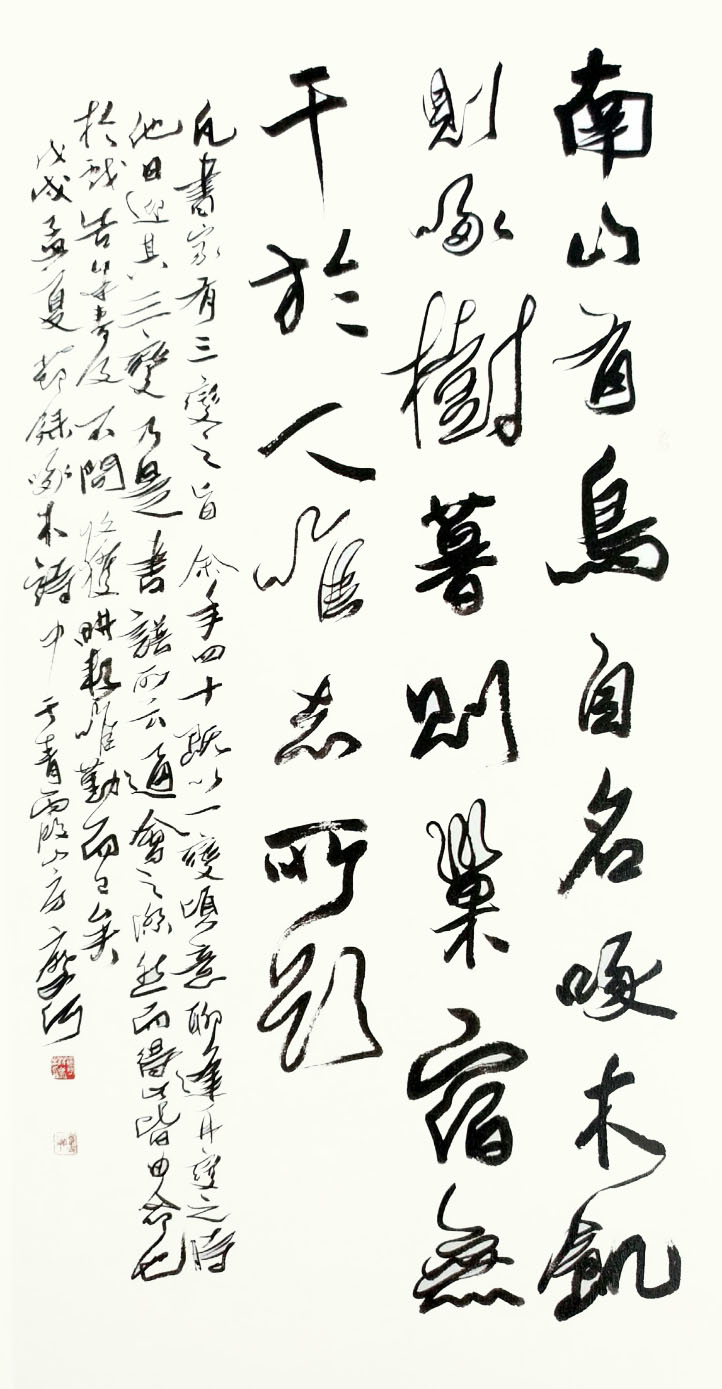 南山有鳥自名啄木飢
則啄樹暮則巢宿無
干於人唯志所欲
凡書家有三變之旨余年四十既以一變頃意聊達升變之時
他日迎其三變乃是書譜所云通會之際然而得皆由命也
於戲吿年書及不問收獲耕耘唯勤而已矣
戊戌孟夏節錄啄木詩中于青霞山房